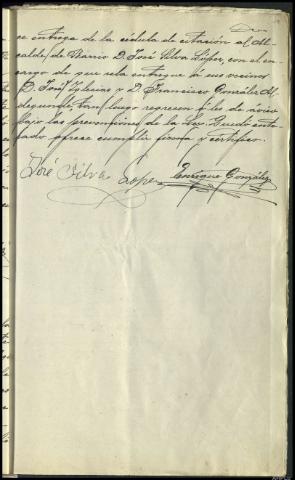 ce entrega de la cédula de citación al Al-
calde de Barrio D. José Silva López, con el en-
cargo de que sela entregue á sus vecinos
D. José Iglesias y D. Francisco González Al
segundo tan luego regresen
bajo las prevenciones de la Ley. Quedó ente-
rado ofrece cumplir firma y certifico.
José Silva
Lopez Enrique González